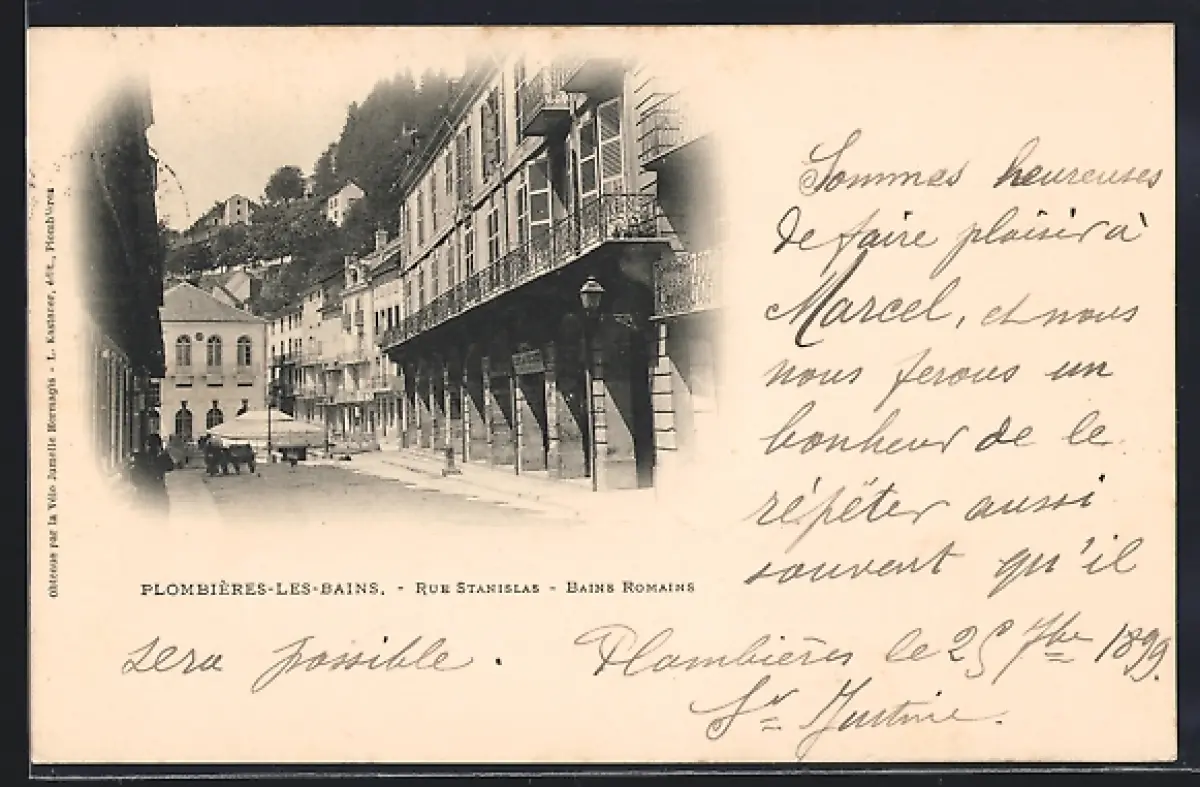 Obtenue par la Vélo Jumelle Hermagis - L. Kastener, édt., Plombières
Sommes heureuses
de faire plaisir à
Marcel, et nous
nous ferons un
bonheur de le
répéter aussi
souvent qu'il
PLOMBIÈRES-LES-BAINS. - RUE STANISLAS - BAINS ROMAINS
sera possible.
Plombières le 25 7bre 1899.
Sr Justine.